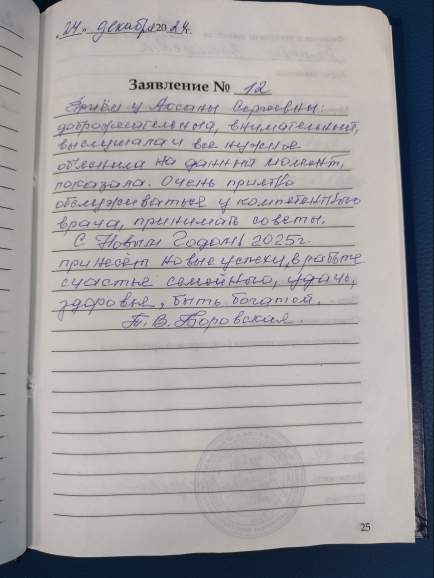 "24" декабря 2024.
Заявление № 12
Приём у Аксаны Сергеевны:
доброжелательный, внимательный,
выслушала и все нужное
объяснила на данный момент,
показала. Очень приятно
обслуживаться у компетентного
врача, принимать советы.
С Новым Годом! 2025г.
принесёт новые успехи, в работе
счастье семейного, удачь,
здоровье, быть богатой.
Т. В. Боровская.
25